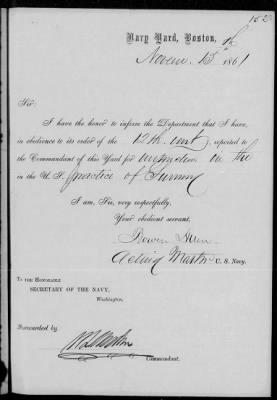 152
Navy Yard, Boston,
Novem 15th 1861
Sir:
I have the honor to inform the Department that I have,
in obedience to its order of the 12th inst, reported to
the Commandant of this Yard for instruction in the
in the U. S. practice of Gunnery
I am, Sir, very respectfully,
Your obedient servant,
Acting Master U. S. Navy.
To the Honorable
SECRETARY OF THE NAVY,
Washington.
Forwarded by,
Commandant.